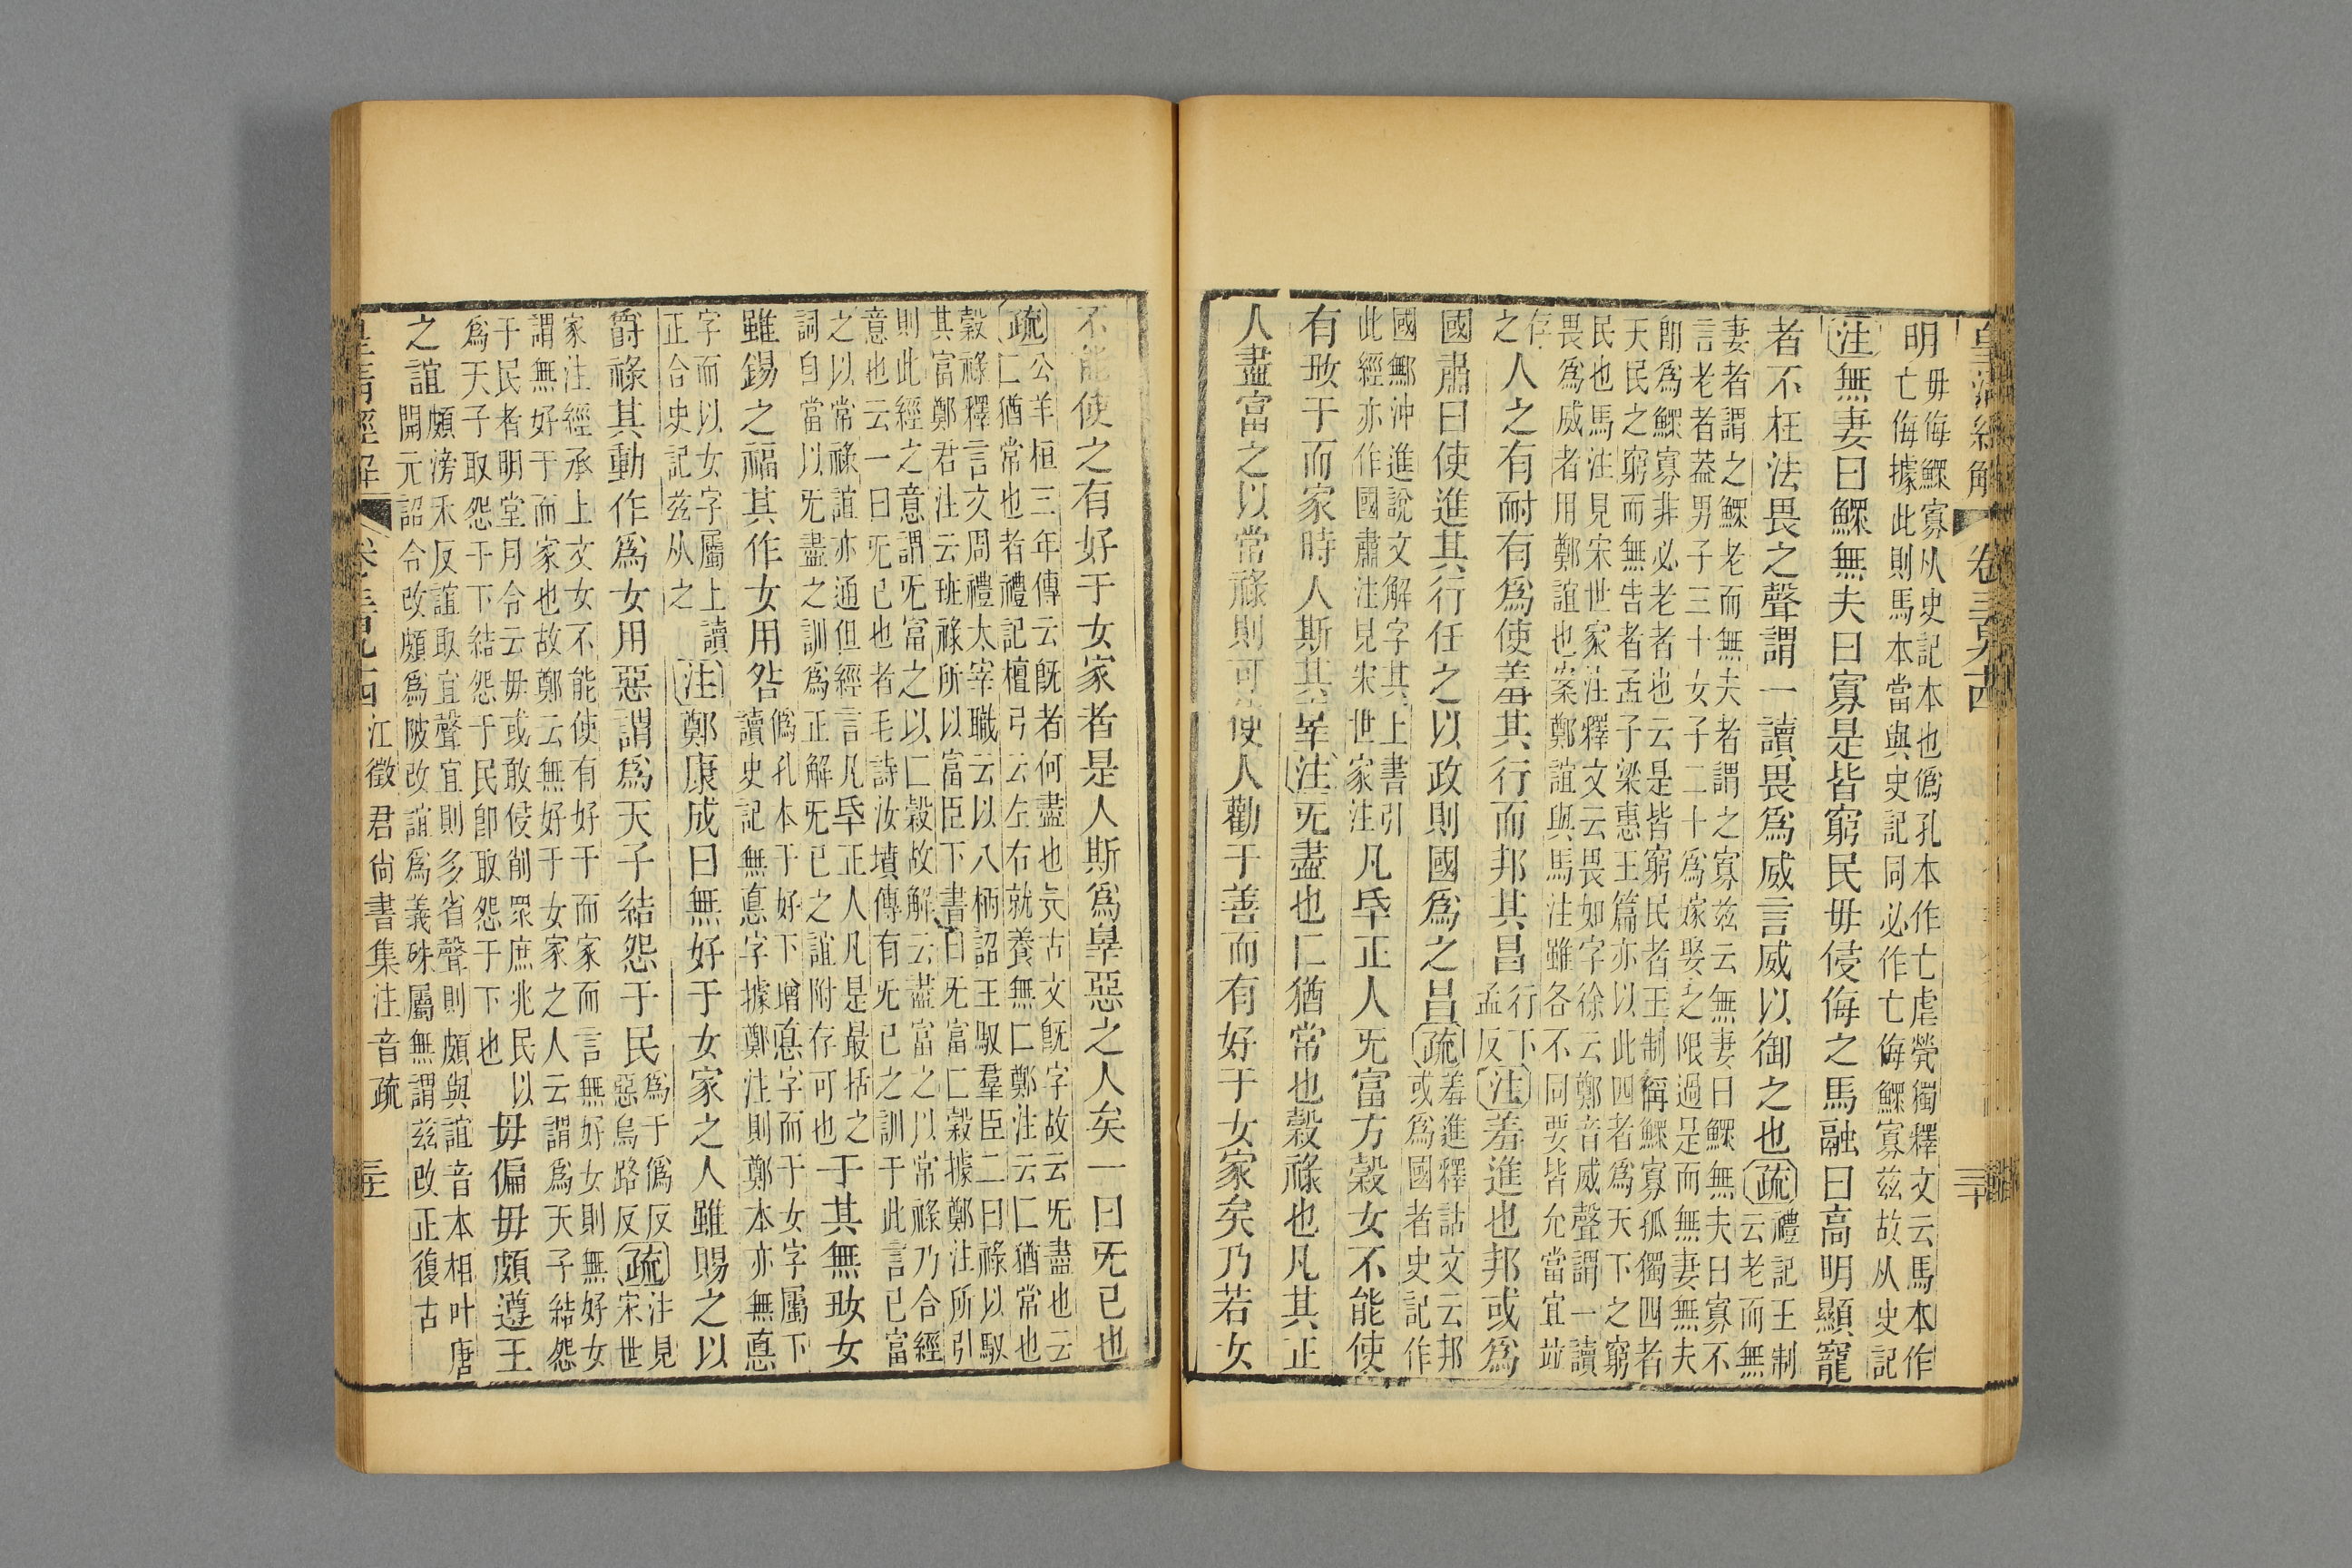 皇清經解 卷三百九十四 三十
明毋侮鰥寡从史記本也僞孔本作亡虐煢獨釋文云馬本作
亡侮據此則馬本當與史記同必作亡侮鰥寡茲故从史記
注無妻曰鰥無夫曰寡是皆窮民毋侵侮之馬融曰高明顯寵
者不枉法畏之聲謂一讀畏爲威言威以御之也疏禮記王制
云老而無
妻者謂之鰥老而無夫者謂之寡茲云無妻曰鰥無夫曰寡不
言老者葢男子三十女子二十爲嫁娶之限過是而無妻無夫
卽爲鰥寡非必老者也云是皆窮民者王制稱鰥寡孤獨四者
天民之窮而無告者孟子梁惠王篇亦以此四者爲天下之窮
民也馬注見宋世家注釋文云畏如字徐云鄭音威聲謂一讀
畏爲威者用鄭誼也案鄭誼與馬注雖各不同要皆允當宜竝
存
之人之有耐有爲使羞其行而邦其昌行下
孟反注羞進也邦或爲
國肅曰使進其行任之以政則國爲之昌疏羞進釋詁文云邦
或爲國者史記作
國鄦沖進說文解字其上書引
此經亦作國肅注見宋世家注凡厥正人旡富方穀女不能使
有𡚽于而家時人斯其辜注旡盡也仁猶常也穀祿也凡其正
人盡富之以常祿則可使人勸于善而有好于女家矣乃若女
不能使之有好于女家者是人斯爲辠惡之人矣一曰旡已也
疏公羊桓三年傳云旣者何盡也旡古文旣字故云旡盡也云
仁猶常也者禮記檀弓云左右就養無仁鄭注云仁猶常也
穀祿釋言文周禮太宰職云以八柄詔王馭羣臣二曰祿以馭
其富鄭君注云班祿所以富臣下書曰旡富仁穀據鄭注所引
則此經之意謂旡富之以仁穀故解云盡富之以常祿乃合經
意也云一曰旡已也者毛詩汝墳傳有旡已之訓于此言已富
之以常祿誼亦通但經言凡厥正人凡是最括之
詞自當以旡盡之訓爲正解旡已之誼附存可也于其無𡚽女
雖錫之福其作女用咎僞孔本于好下增悳字而于女字屬下
讀史記無悳字據鄭注則鄭本亦無悳
字而以女字屬上讀
正合史記茲从之注鄭康成曰無好于女家之人雖賜之以
爵祿其動作爲女用惡謂爲天子結怨于民爲于僞反
惡烏路反疏注見
宋世
家注經承上文女不能使有好于而家而言無好女則無好女
謂無好于而家也故鄭云無好于女家之人云謂爲天子結怨
于民者明堂月令云毋或敢侵削眾庶兆民以
爲天子取怨于下結怨于民卽取怨于下也毋偏毋頗遵王
之誼頗滂禾反誼取宜聲宜則多省聲則頗與誼音本相叶唐
開元詔令改頗爲陂改誼爲義殊屬無謂茲改正復古
皇清經解 卷三百九十四 江徵君尚書集注音疏 三十一